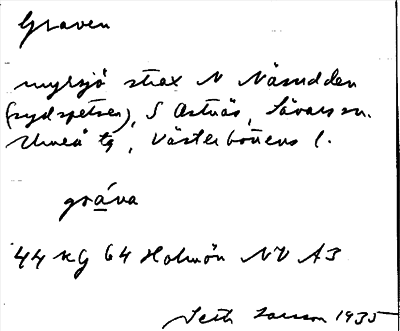 Graven
myrsjö strax N Näsudden
(sydspetsen), S Ostnäs, Sävars sn.
Umeå tg, Västerbottens l.
gráva
44 kg 64 Holmön NV A3
Seth Larsson 1935